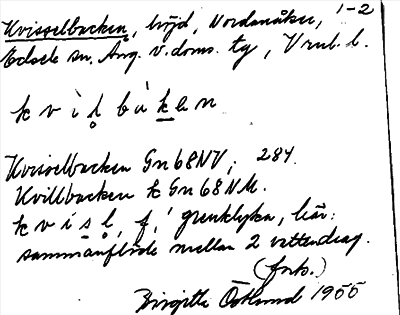 1-2
Kvisselbacken, höjd, Nordanåker,
Edsele sn. Ång. v. doms. tg, Vrul. l.
k v i s̥ l b à k e n
Kvisselbacken Gn 68 NV; 284.
Kvillbacken k Gn 68 NV.
k v í s l̥, f, ' grenklyka, här:
sammanflöde mellan 2 vattendrag.
(forts.)
Birgitta Östlund 1955